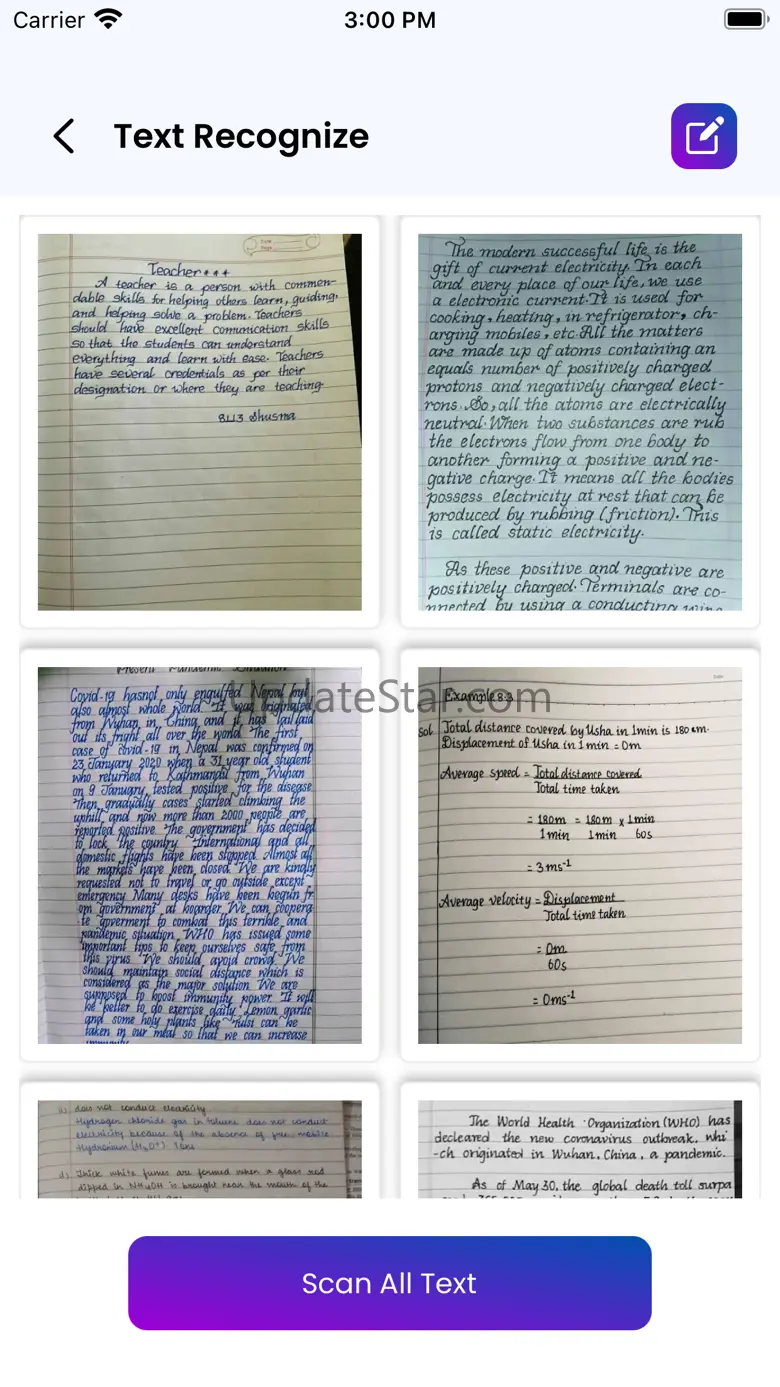 Carrier 3:00 PM
Text Recognize
Teacher
A teacher is a person with commen-
dable skills for helping others learn, guiding,
and helping solve a problem. Teachers
should have excellent communication skills
so that the students can understand
everything and learn with ease. Teachers
have several credentials as per their
designation or where they are teaching.
The modern successful life is the
gift of current electricity. In each
and every place of our life, we use
a electronic current. It is used for
cooking, heating, in refrigerator, ch-
arging mobiles, etc. All the matters
are made up of atoms containing an
equals number of positively charged
protons and negatively charged elect-
rons. So, all the atoms are electrically
neutral. When two substances are rub
the electrons flow from one body to
another forming a positive and ne-
gative charge. It means all the bodies
possess electricity at rest that can be
produced by rubbing (friction). This
is called static electricity.
As these positive and negative are
positively charged. Terminals are co-
nnected by using a conducting wire
Present Pandemic Situation
Covid-19 hasnot only engulfed Nepal but
also almost whole world. It was originated
from Wuhan in China and it has laid
out its fright all over the world. The first
case of covid-19 in Nepal was confirmed on
23 January 2020 when a 31 year old student
who returned to Kathmandu from Wuhan
on 9 January, tested positive for the disease
Then gradually cases started climbing the
uphill and now more than 2000 people are
reported positive. The government has decided
to lock the country. International and all
domestic flights have been stopped. Almost all
the markets have been closed. We are kindly
requested not to travel or go outside except
emergency. Many desks have been begun fr
om government at boarder. We can coopera-
te goverment to combat this terrible and
pandemic situation. WHO has issued some
important tips to keep ourselves safe from
this virus. We should avoid crowd. We
should maintain social distance which is
considered as the major solution. We are
supposed to boost immunity power. It will
be better to do exercise daily. Lemon, garlic
and some holy plants like Tulsi can be
taken in our meal so that we can increase
immunity
UpdateStar.com
Example 8.3
Sol. Total distance covered by Usha in 1min is 180 m.
Displacement of Usha in 1 min = 0m
Average speed = Total distance covered
Total time taken
= 180m = 180m x 1min
1min 1min 60s
= 3 ms-1
Average velocity = Displacement
Total time taken
= 0m
60s
= 0ms-1
does not conduct electricity.
Hydrogen chloride gas in toluene does not conduct
electricity because of the absence of free mobile
Hydronium (H₃O⁺) Ions
d) Thick white fumes are formed when a glass rod
dipped in NH₄OH is brought near the mouth of the
The World Health Organization (WHO) has
decleared the new coronavirus outbreak, whi
-ch originated in Wuhan, China, a pandemic.
As of May 30, the global death toll surpa
Scan All Text